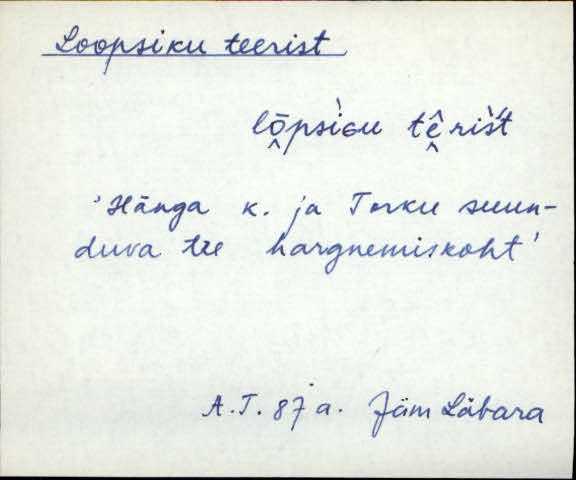 Loopsiku teerist
lō̭psìɢu tḙ̂rìśt
'Hänga k. ja Torku suun-
duva tee hargnemiskoht'
A.T. 87 a. Jäm Läbara